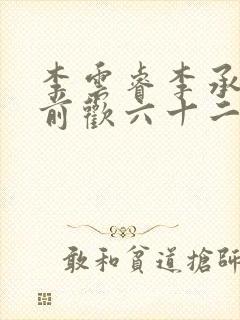 李雲睿李承
前歡六十二
敢和貧道搶師